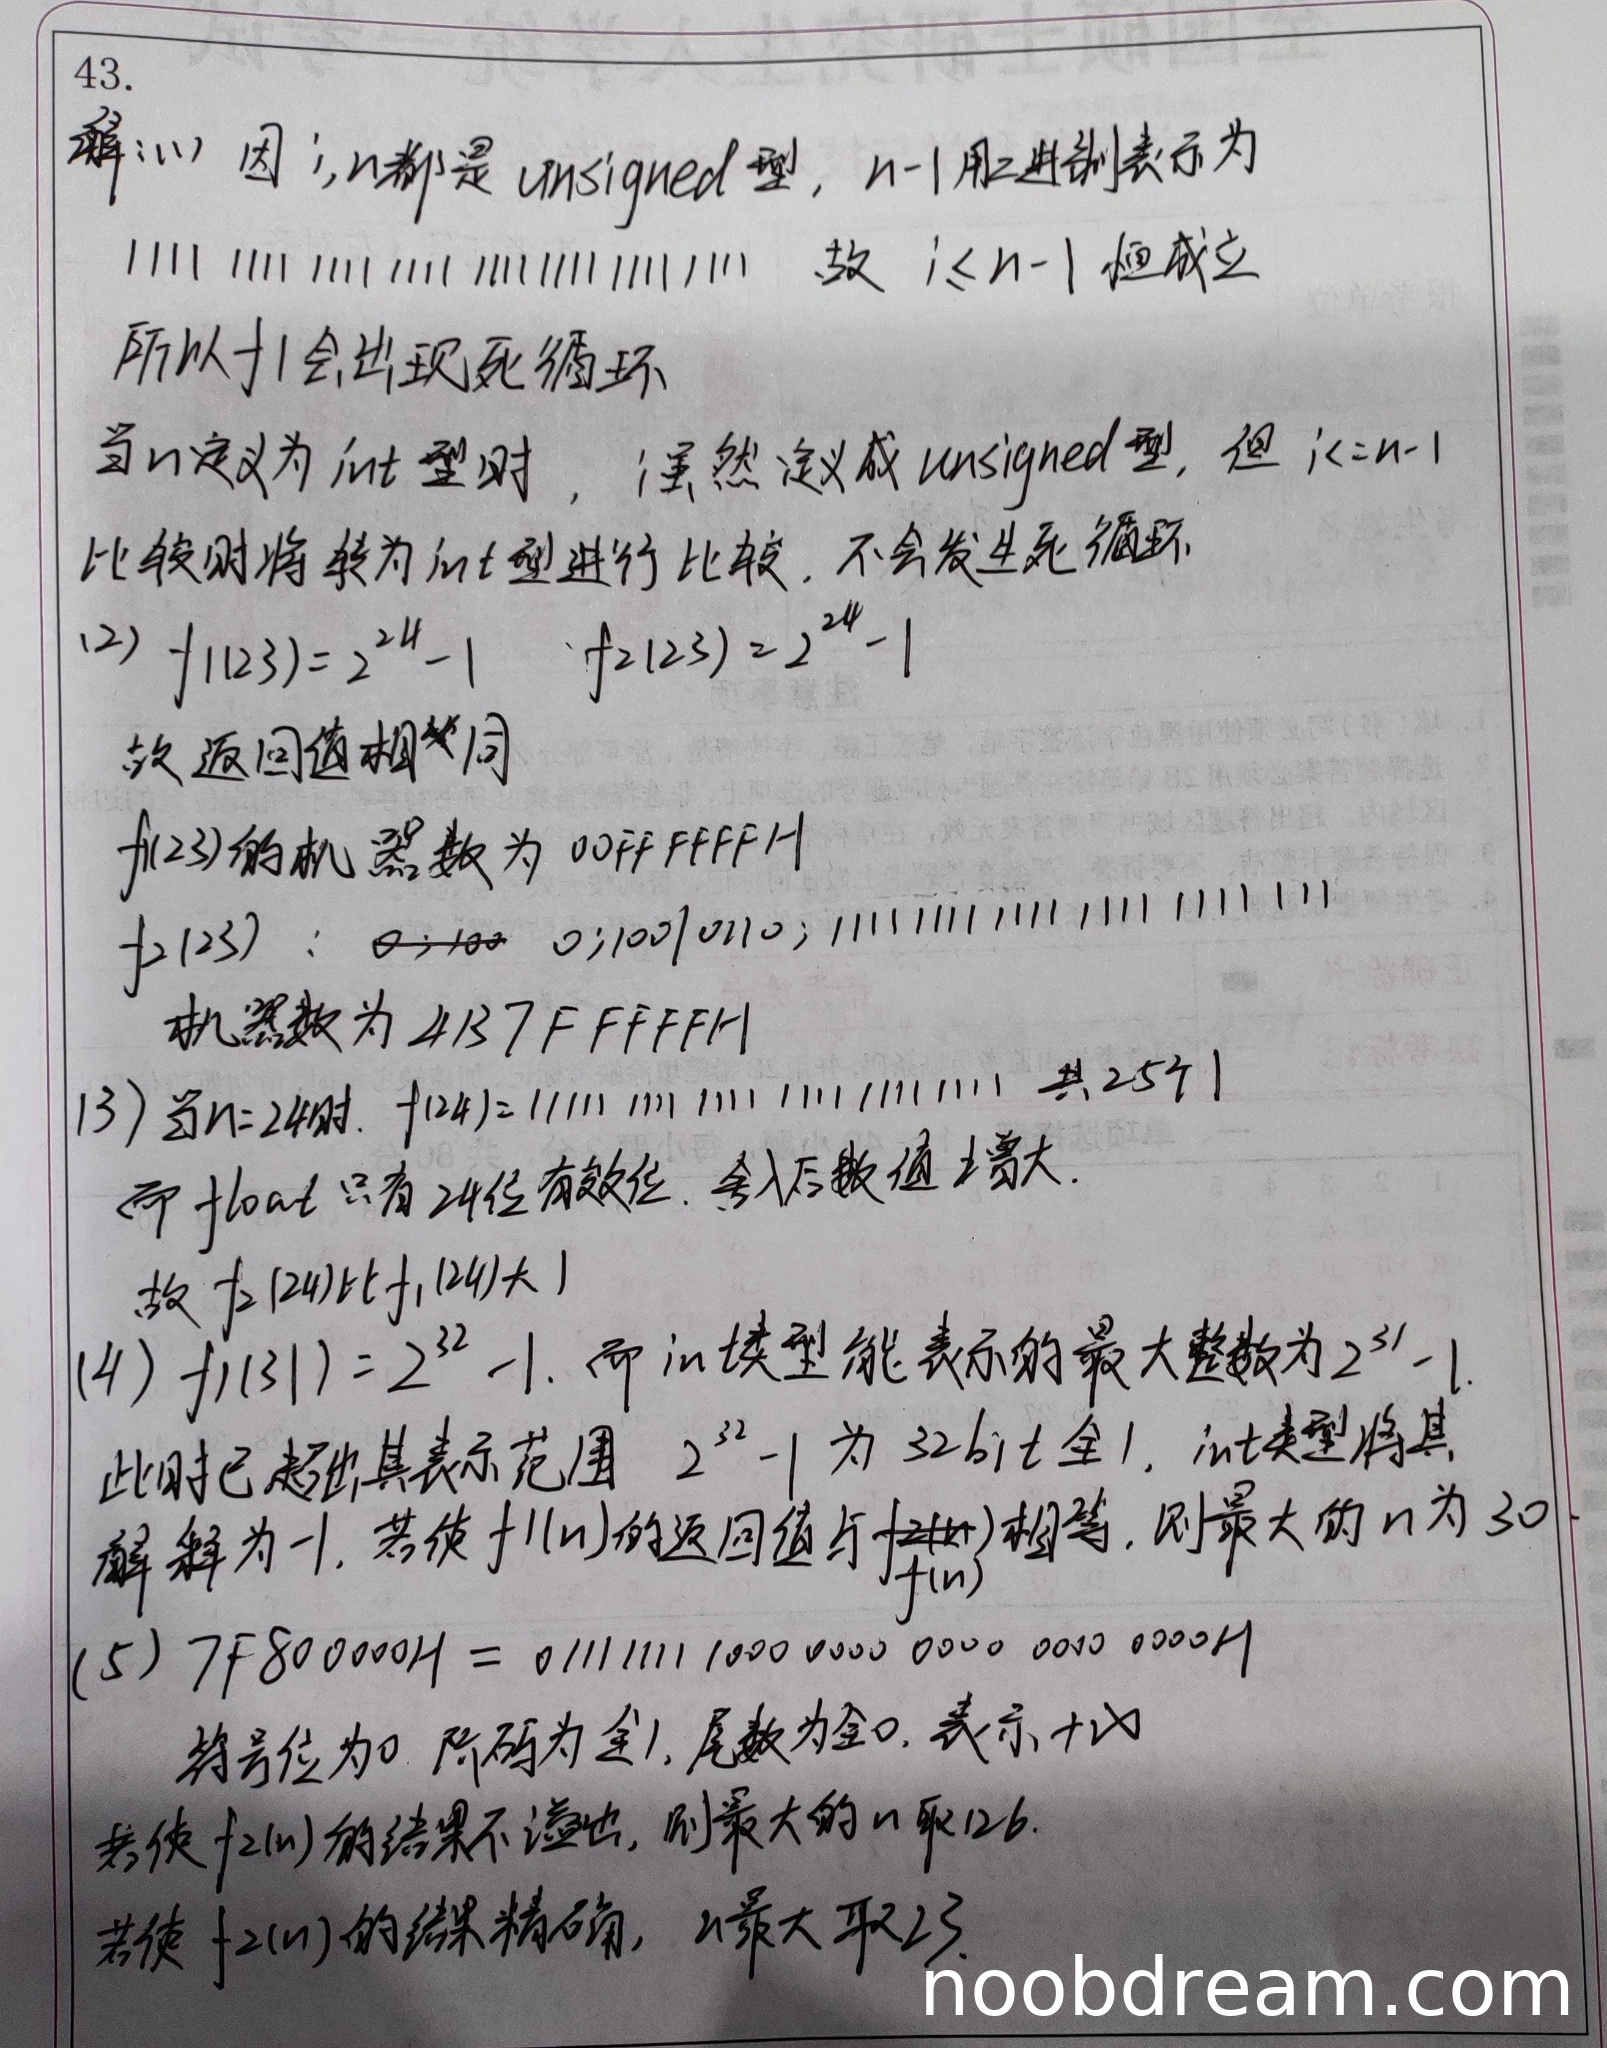 43.
解:(1) 因i,n都是unsigned型, n-1用二进制表示为
1111 1111 1111 1111 1111 1111 1111 1111 故 i≤n-1 恒成立
所以f1会出现死循环
当n定义为int型时, i虽然定义成unsigned型, 但 i<=n-1
比较时将转为int型进行比较, 不会发生死循环
(2) f1(23)=2^24-1 f2(23)=2^24-1
故返回值相同
f1(23)的机器数为 00FFFFFFH
f2(23) : 0;10010110;1111 1111 1111 1111 1111 111
机器数为 4B7FFFFFH
(3) 当n=24时. f(24)=11111 1111 1111 1111 1111 1111 共25个1
而float只有24位有效位. 舍入后数值增大.
故 f2(24)比f1(24)大1
(4) f1(31)=2^32-1. 而int类型能表示的最大整数为2^31-1.
此时已超出其表示范围 2^32-1 为 32bit全1. int类型将其
解释为-1. 若使f1(n)的返回值与f(n)相等. 则最大的n为30.
(5) 7F800000H = 01111111 1000 0000 0000 0000 0000H
符号位为0 阶码为全1. 尾数为全0. 表示+∞
若使f2(n)的结果不溢出, 则最大的n取126.
若使f2(n)的结果精确, n最大取23.
noobdream.com